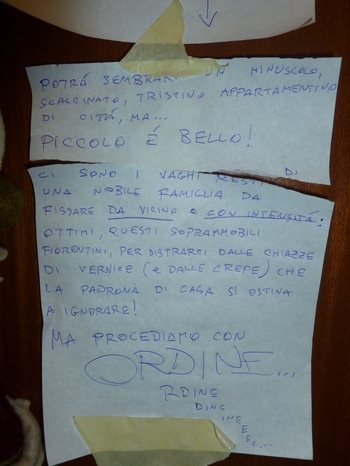 POTRÁ SEMBRARE UN MINUSCOLO,
SCALCINATO, TRISTINO APPARTAMENTINO
DI CITTÁ, MA...
PICCOLO É BELLO!
CI SONO I VAGHI RESTI DI
UNA NOBILE FAMIGLIA DA
FISSARE DA VICINO E CON INTENSITÁ:
OTTIMI, QUESTI SOPRAMMOBILI
FIORENTINI, PER DISTRARCI DALLE CHIAZZE
DI VERNICE (E DALLE CREPE) CHE
LA PADRONA DI CASA SI OSTINA
A IGNORARE!
MA PROCEDIAMO CON
ORDINE...
RDINE
DINE
INE
E
E...